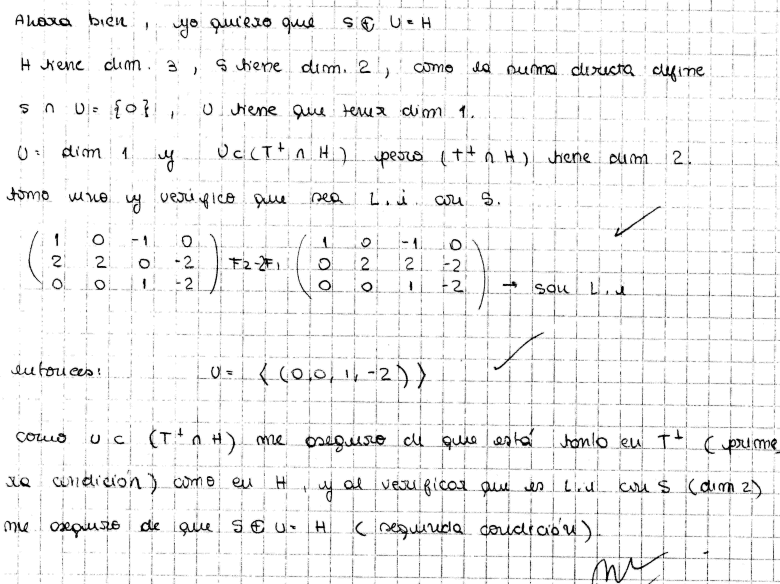 Ahora bien, yo quiero que S ⊕ U = H
H tiene dim. 3, S tiene dim. 2, como la suma directa define
S ∩ U = {0}, U tiene que tener dim 1.
U = dim 1 y U ⊂ (T⊥ ∩ H) pero (T⊥ ∩ H) tiene dim 2.
tomo uno y verifico que sea L.i. con S.
( 1 0 -1 0 ) ( 1 0 -1 0 )
( 2 2 0 -2 ) F2-2F1 ( 0 2 2 -2 )
( 0 0 1 -2 ) ( 0 0 1 -2 ) → son L.i
entonces: U = ⟨(0,0,1,-2)⟩
como U ⊂ (T⊥ ∩ H) me aseguro de que está tanto en T⊥ (prime
ra condición) como en H, y al verificar que es L.i con S (dim 2)
me aseguro de que S ⊕ U = H (segunda condición).